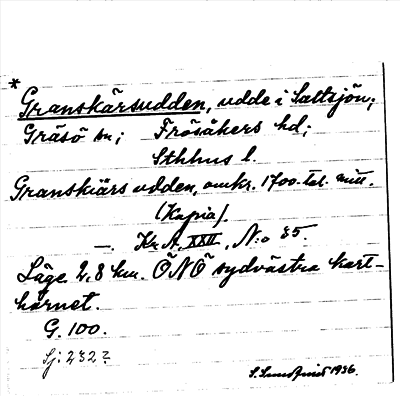 *
Granskärsudden, udde i Saltsjön;
Gräsö sn; Frösåkers hd;
Sthlms l.
Granskiärs udden, omkr. 1700-tal. mitt.
(Kopia).
—. Kr. A. XXII, N:o 35.
Läge. 2,8 km. ÖNÖ sydvästra kart-
hörnet.
G. 100.
Sj: 232?
S. Lundquist 1936.